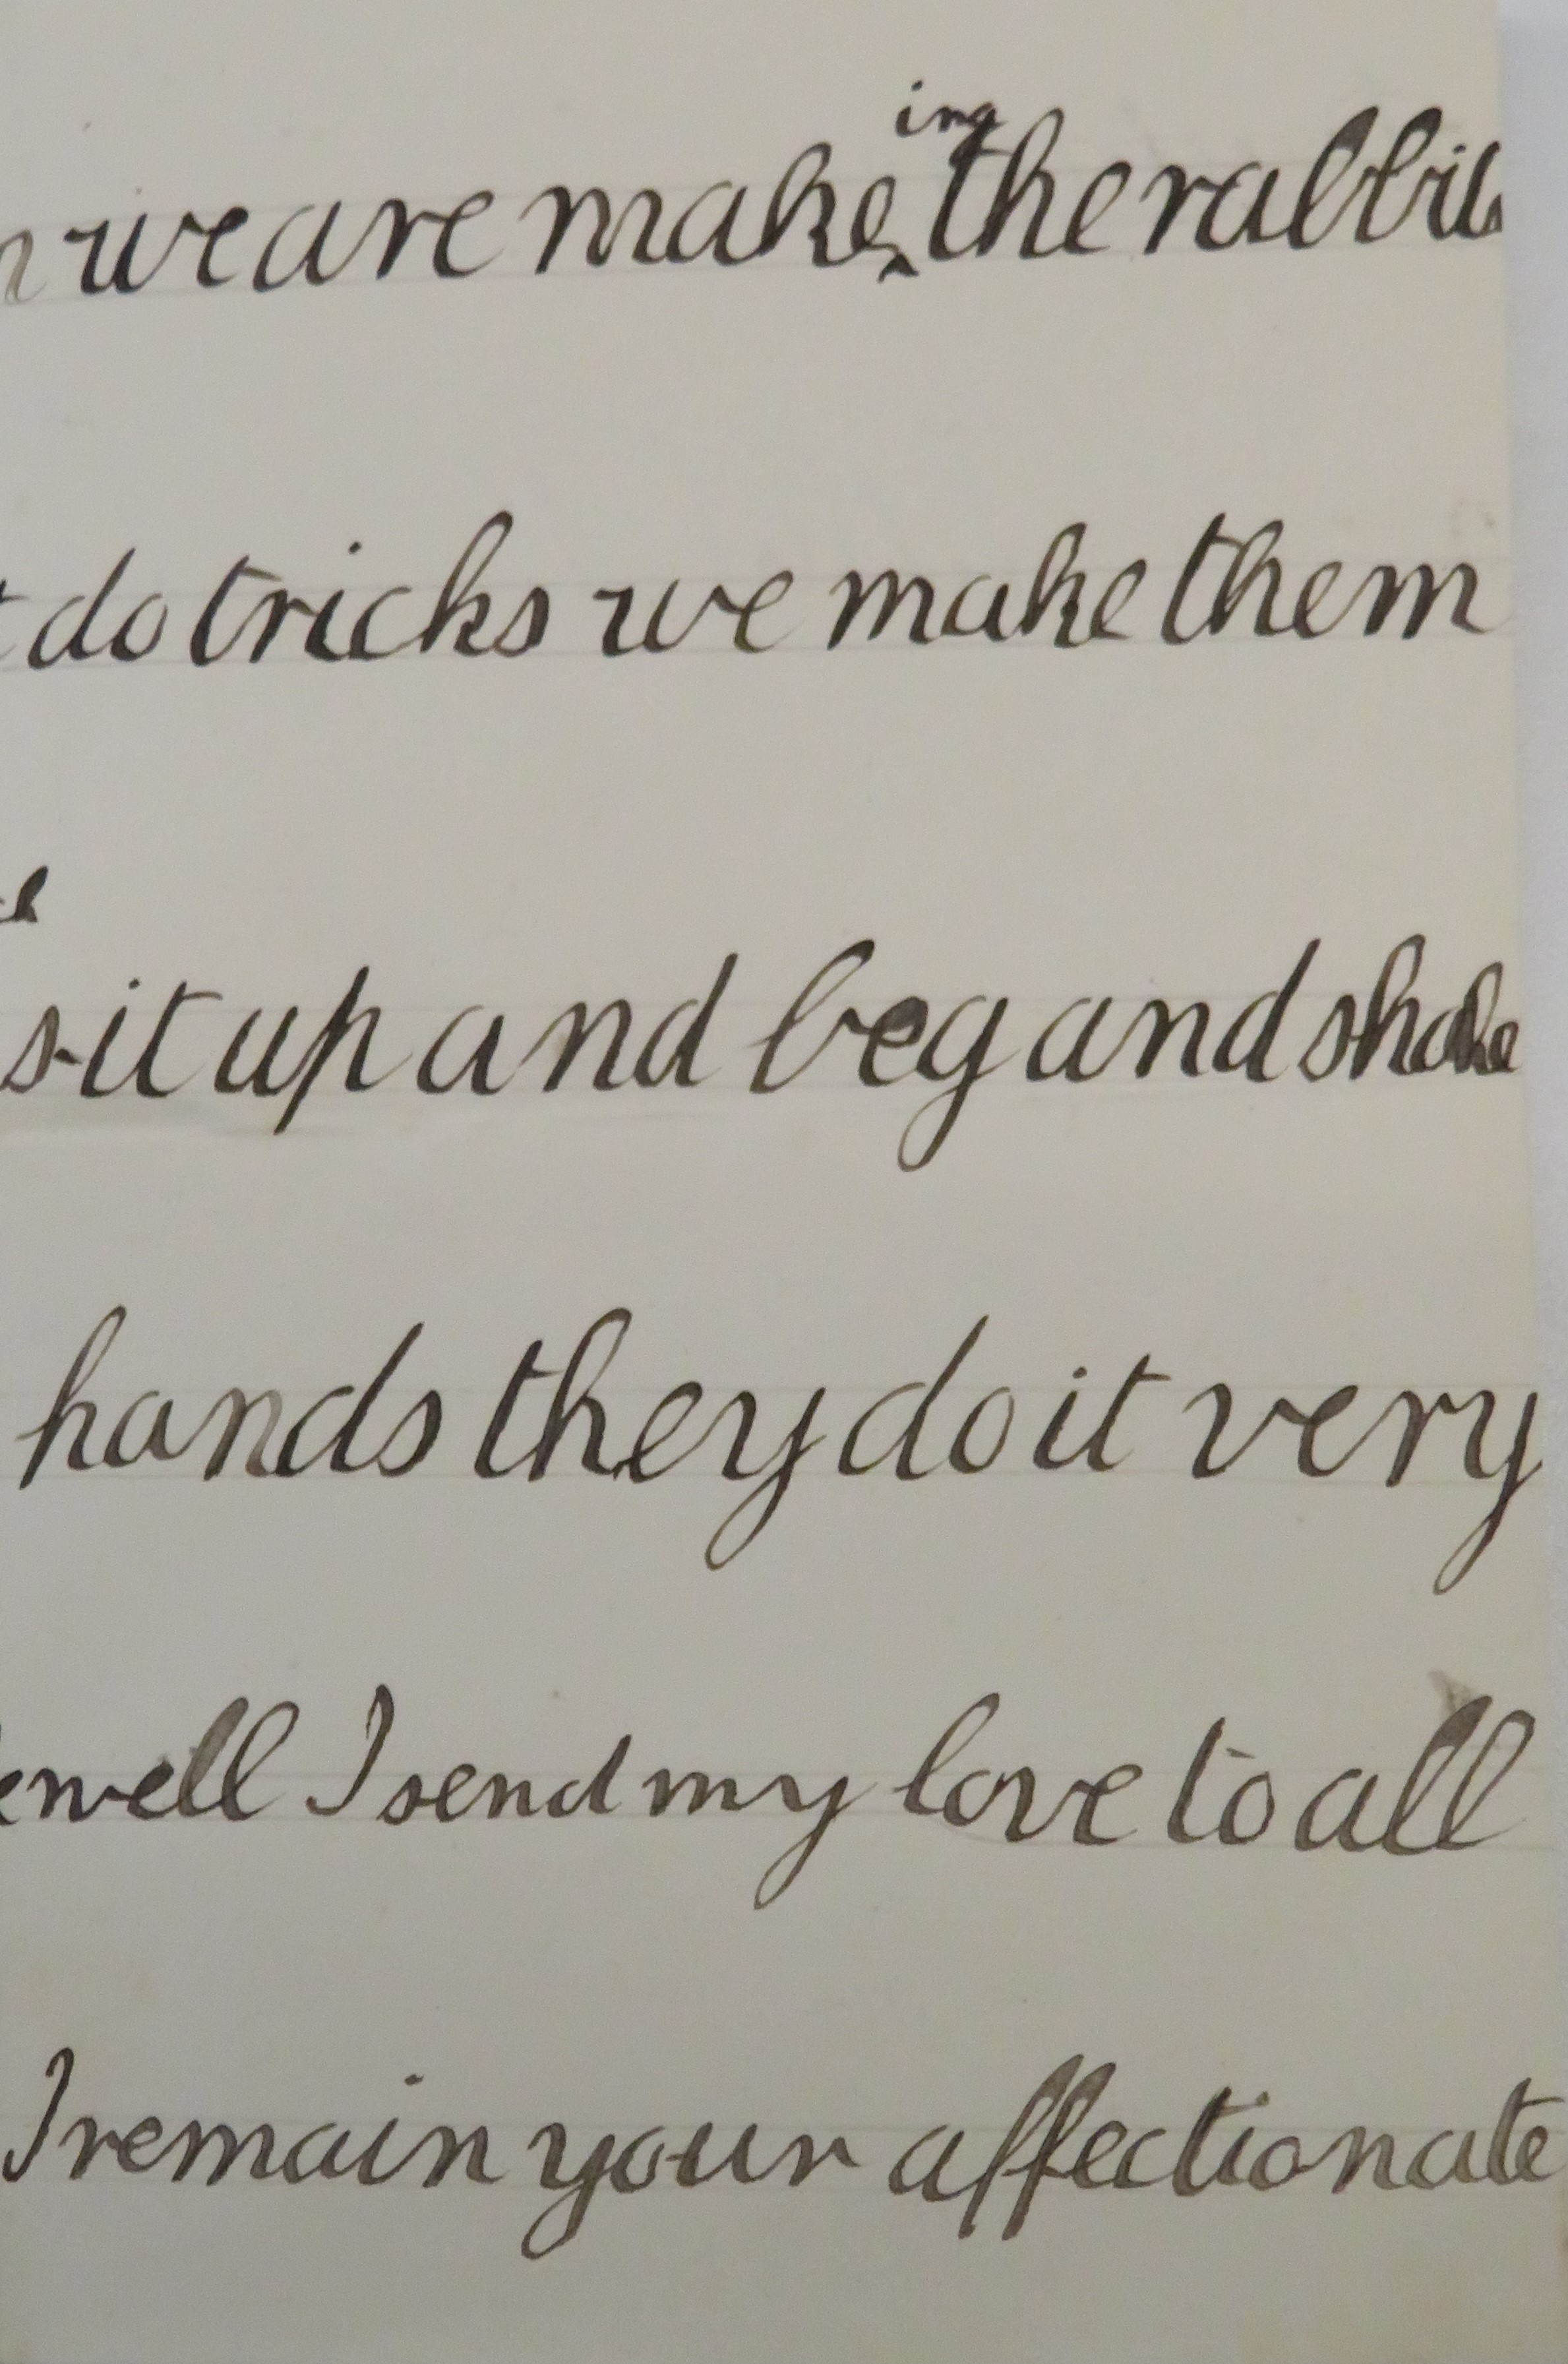 we are make ing the rabbits
do tricks we make them
sit up and beg and shake
hands they do it very
well I send my love to all
I remain your affectionate